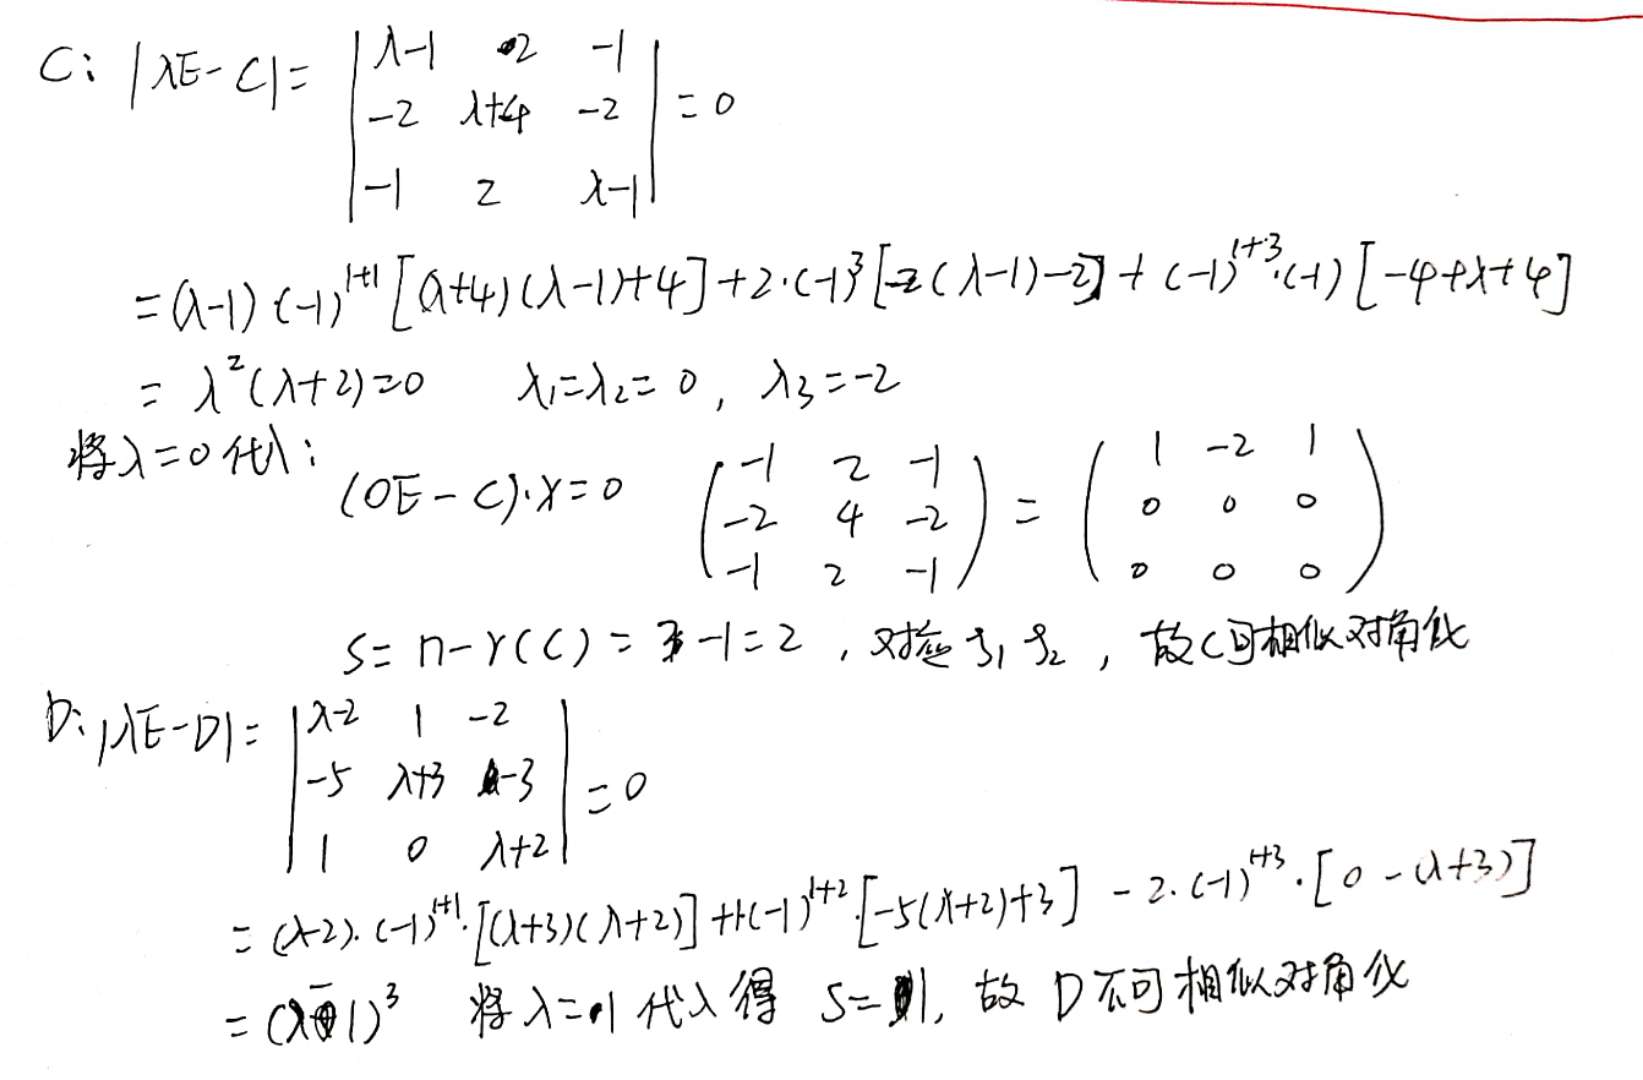 C: |λE-C|= | λ-1 2 -1 |
| -2 λ+4 -2 | =0
| -1 2 λ-1 |
=(λ-1)(-1)^{1+1}[(λ+4)(λ-1)+4]+2·(-1)^3[-2(λ-1)-2]+(-1)^{1+3}·(-1)[-4+λ+4]
= λ^2(λ+2)=0 λ₁=λ₂=0, λ₃=-2
将λ=0代入:
(0E-C)·x=0 ( -1 2 -1 ) = ( 1 -2 1 )
( -2 4 -2 ) ( 0 0 0 )
( -1 2 -1 ) ( 0 0 0 )
S= n-r(C)=3-1=2, 对应ξ₁ ξ₂, 故C可相似对角化
D: |λE-D|= | λ-2 1 -2 |
| -5 λ+3 -3 | =0
| 1 0 λ+2 |
=(λ-2)·(-1)^{1+1}·[(λ+3)(λ+2)]+1·(-1)^{1+2}·[-5(λ+2)+3] -2·(-1)^{1+3}·[0-(λ+3)]
= (λ 1)^3 将λ= 1代入得 S=1, 故D不可相似对角化